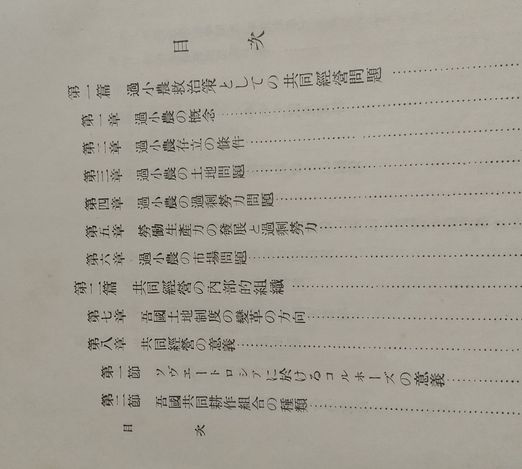 目次
第一篇 過小農救治策としての共同經營問題
第一章 過小農の概念
第二章 過小農存立の條件
第三章 過小農の土地問題
第四章 過小農の過剩勞力問題
第五章 勞働生產力の發展と過剩勞力
第六章 過小農の市場問題
第二篇 共同經營の內部的組織
第七章 吾國土地制度の變革の方向
第八章 共同經營の意義
第一節 ソヴェートロシアに於けるコルホーズの意義
第二節 吾國共同耕作組合の種類
目次